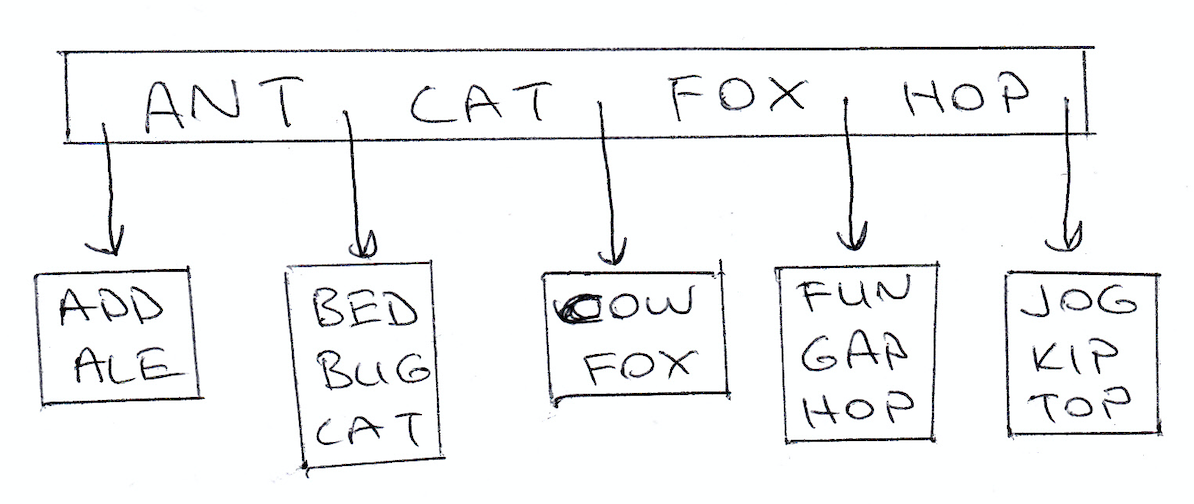 ANT CAT FOX HOP
ADD
ALE
BED
BUG
CAT
COW
FOX
FUN
GAP
HOP
JOG
KIP
TOP